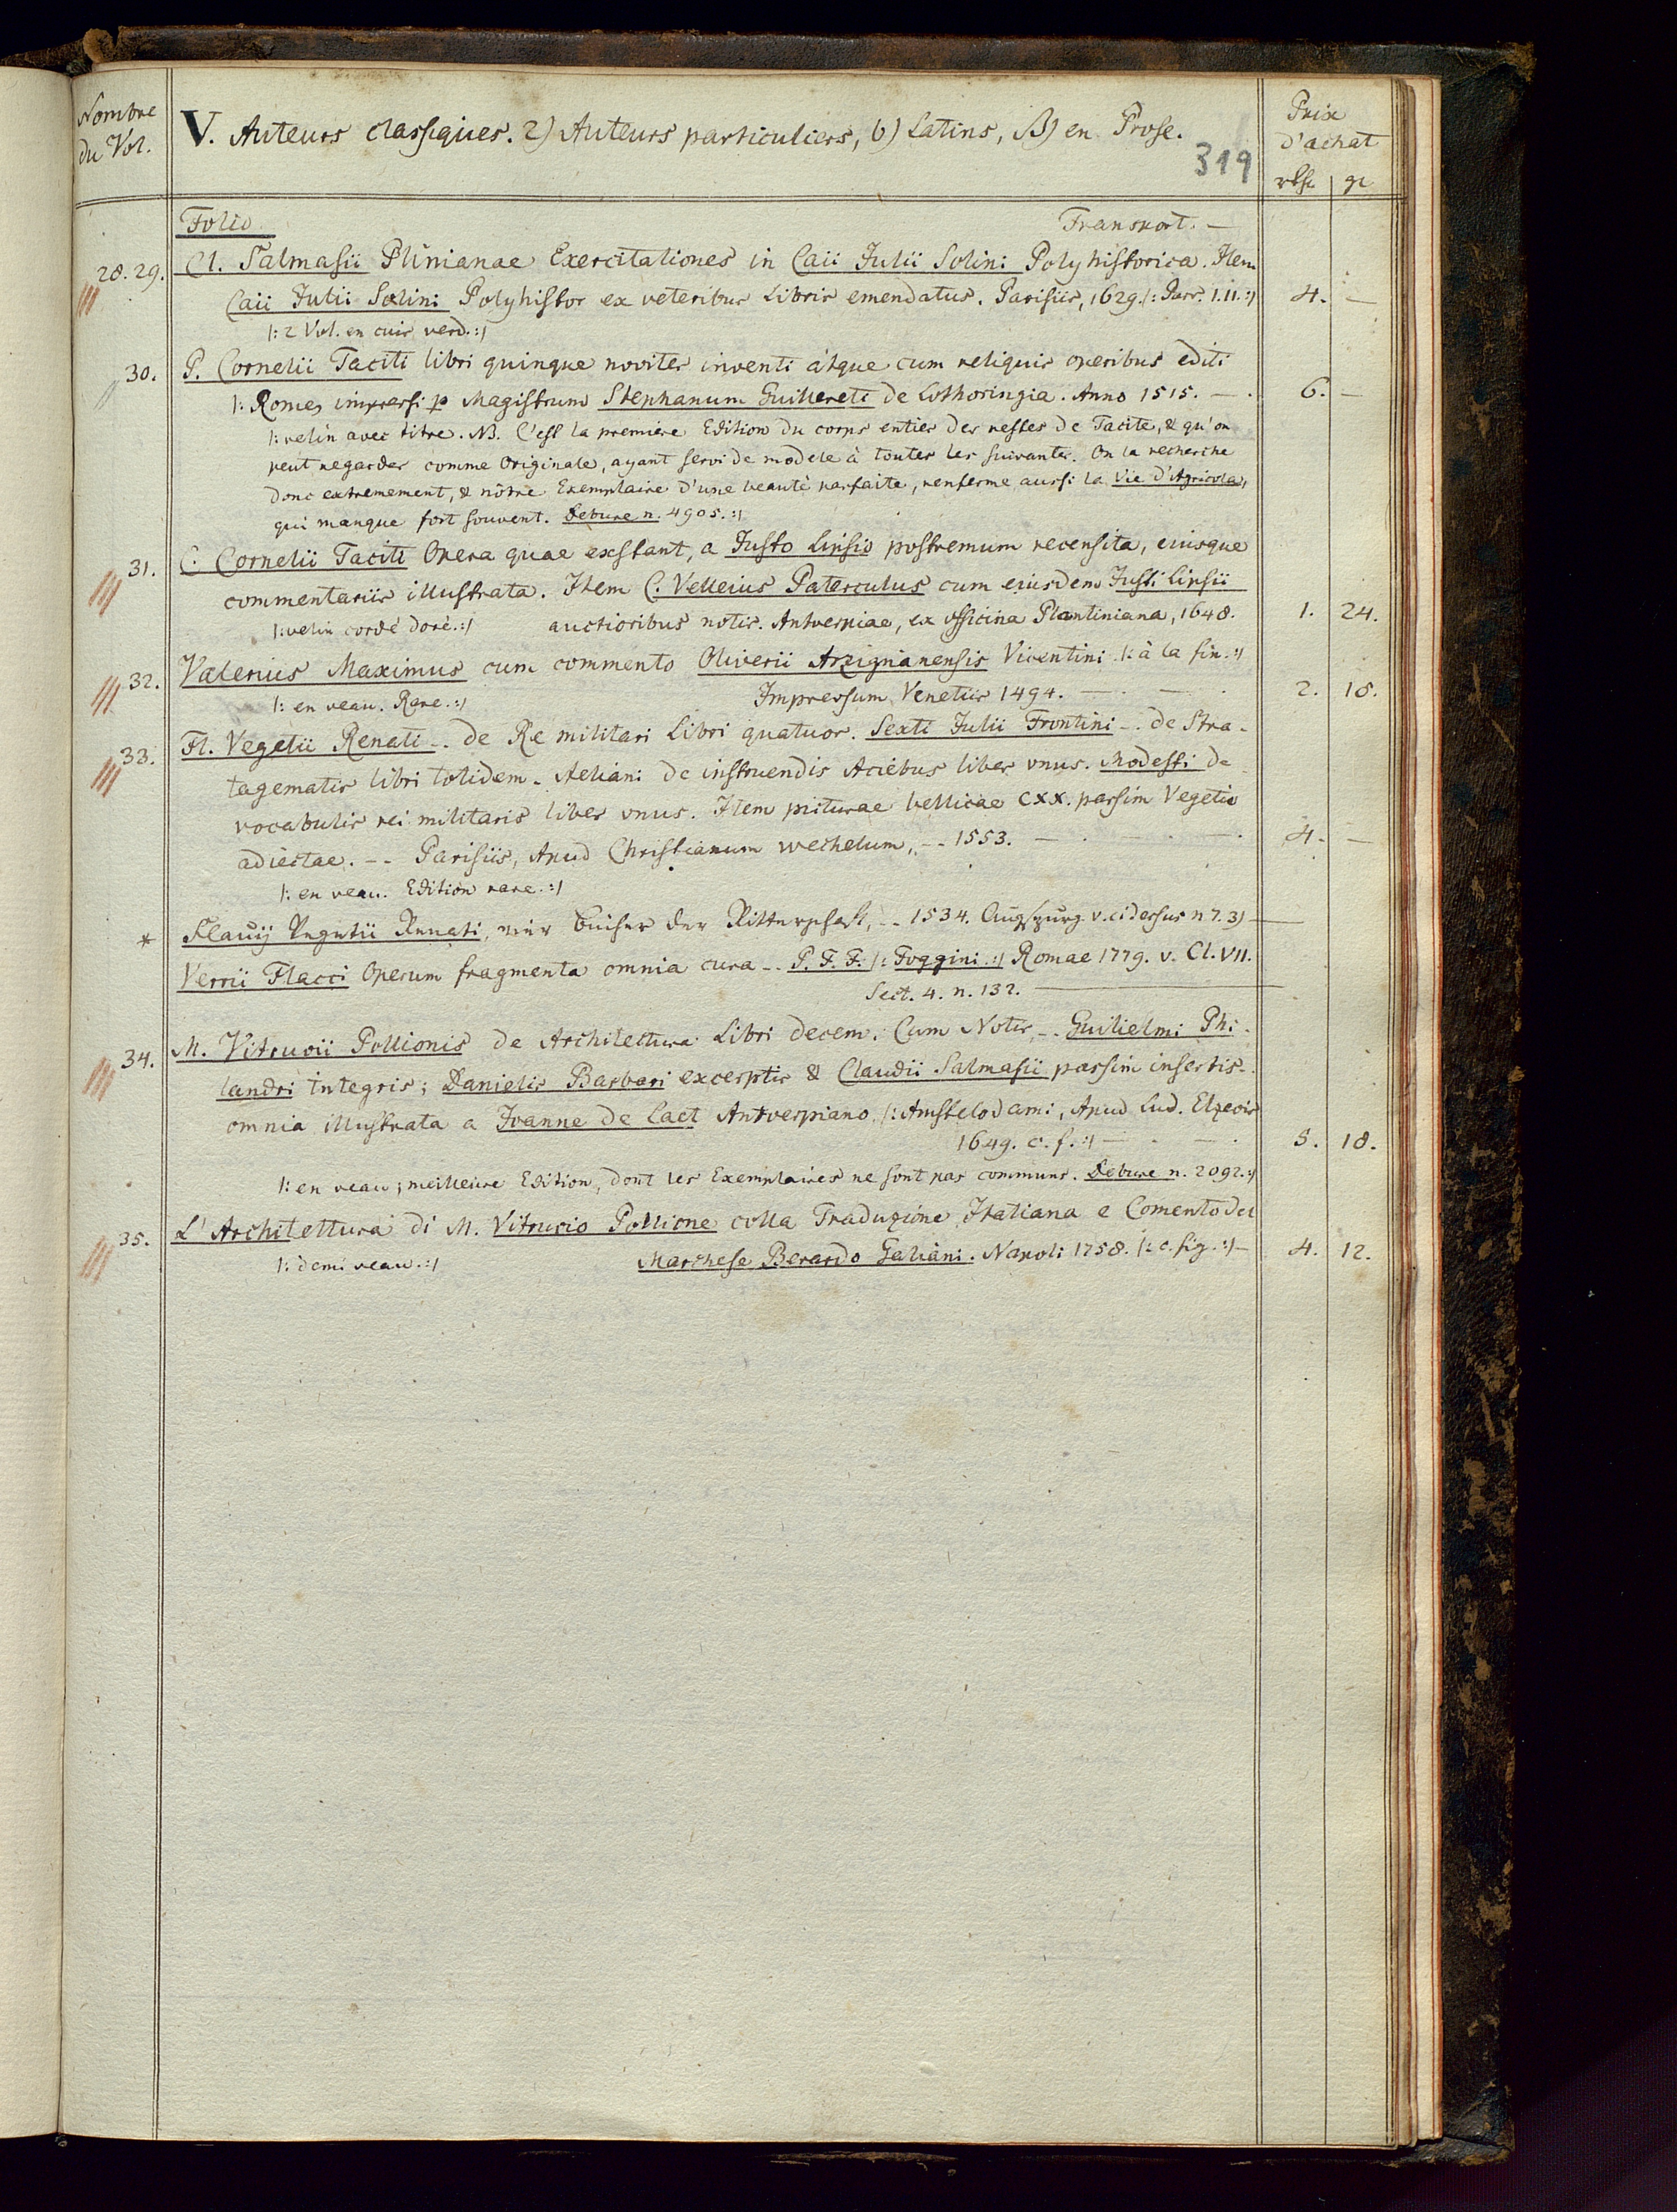 Nombre
du Vol.
V. Auteurs classiques. 2) Auteurs particuliers, b) Latins, β) en Prose.
319
Prix
d'achat
rthl. gr
Folio Transport. —
28. 29. Cl. Salmasii Plinianae Exercitationes in Caii Julii Solini Polyhistorica. Item
Caii Julii Solini Polyhistor ex veteribus Libris emendatus. Parisiis, 1629. /: Parr. I. II. :/ 4. —
/: 2 Vol. en cuir verd. :/
30. P. Cornelii Taciti libri quinque noviter inventi atque cum reliquis operibus editi
/: Rome, impressi p Magistrum Stephanum Guillereti de Lothoringia. Anno 1515. — . 6. —
/: velin avec titre. NB. C'est la premiere Edition du corps entier des restes de Tacite, & qu'on
peut regarder comme Originale, ayant servi de modele à toutes les suivantes. On la recherche
donc extremement, & nôtre Exemplaire d'une beauté parfaite, renferme aussi la Vie d'Agricola,
qui manque fort souvent. Debure n. 4905. :/
31. C. Cornelii Taciti Opera quae exstant, a Justo Lipsio postremum recensita, eiusque
commentariis illustrata. Item C. Velleius Paterculus cum eiusdem Justi Lipsii
/: velin cordé doré. :/ auctioribus notis. Antverpiae, ex officina Plantiniana, 1648. 1. 24.
32. Valerius Maximus cum commento Oliverii Arzignanensis Vicentini /: à la fin. :/
/: en veau. Rare. :/ Impressum Venetiis 1494. — . — . 2. 18.
33. Fl. Vegetii Renati -- de Re militari Libri quatuor. Sexti Julii Frontini -- de Stra-
tagematis libri totidem. Aeliani de instruendis Aciebus liber unus. Modesti de
vocabulis rei militaris liber unus. Item picturae bellicae CXX. passim Vegetio
adiectae. -- Parisiis, Apud Christianum Wechelum, -- 1553. — . — . — . 4. —
/: en veau. Edition rare. :/
* Flavij Vegetii Renati, vier Bücher der Ritterschaft, -- 1534. Augspurg. v. ci dessus n 7. 3) —
Verrii Flacci Operum fragmenta omnia cura -- P. F. F. /: Foggini :/ Romae 1779. v. Cl. VII.
Sect. 4. n. 132. —
34. M. Vitruvii Pollionis de Architectura Libri decem. Cum Notis -- Guilielmi Phi-
landri integris; Danielis Barbari excerptis & Claudii Salmasii passim insertis -
omnia illustrata a Joanne de Laet Antverpiano /: Amstelodami, Apud Lud. Elzevir
1649. c. f. :/ — . — . 5. 18.
/: en veau; meilleure Edition, dont les Exemplaires ne sont pas communs. Debure n. 2092. :/
35. L'Architettura di M. Vitruvio Pollione colla Traduzione Italiana e Comento del
/: demi veau. :/ Marchese Berardo Galiani. Napoli 1758. /: c. fig. :/ — 4. 12.